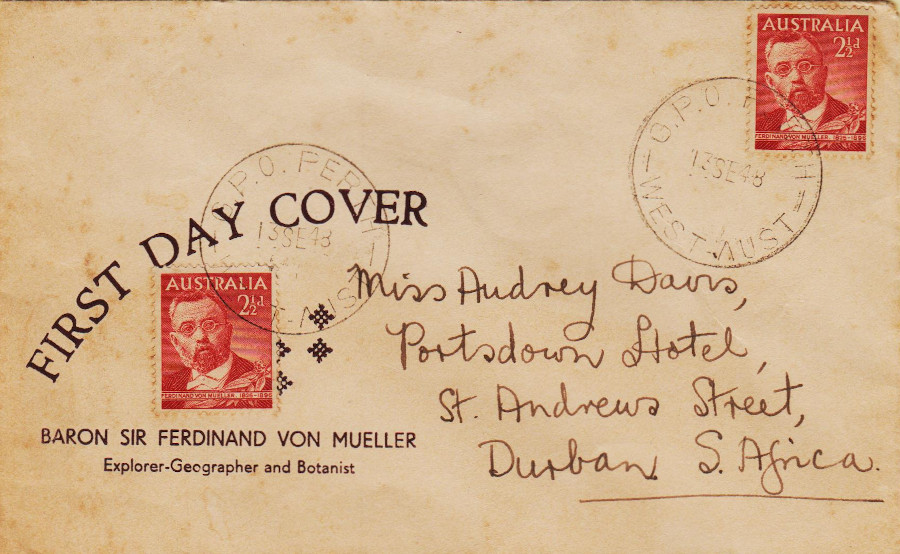 AUSTRALIA
2½d
FERDINAND VON MUELLER. 1825-1896
G.P.O. PERTH
13SE48
WEST. AUST
G.P.O. PERTH
13SE48
AUST
FIRST DAY COVER
AUSTRALIA
2½d
FERDINAND VON MUELLER. 1825-1896
BARON SIR FERDINAND VON MUELLER
Explorer-Geographer and Botanist
Miss Audrey Davis,
Portsdown Hotel,
St. Andrews Street,
Durban S. Africa.